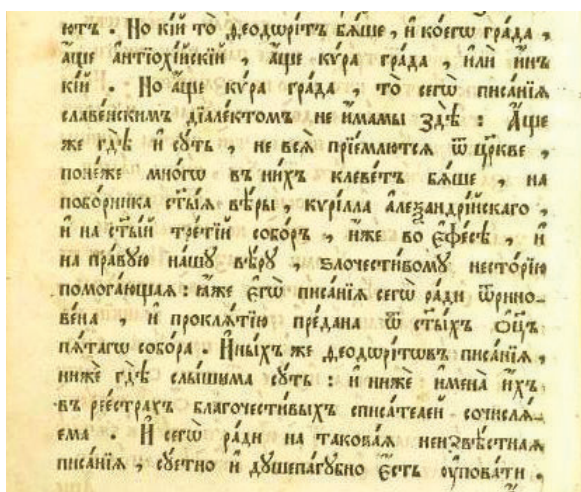 ютъ . Но кі́й то̀ ѳеодѡри́тъ бѧ́ше , и҆ ко́егѡ гра́да ,
а҆́ще а҆нтїѡхі́йскїй , а҆́ще кѵ́ра гра́да , и҆лѝ и҆́нъ
кі́й . Но а҆́ще кѵ́ра гра́да , то̀ сегѡ̀ писа́нїѧ
славе́нскимъ дїале́ктомъ не и҆́мамы здѣ̀ : А҆́ще
же гдѣ̀ и҆ сꙋ́ть , не всѧ̑ прїе́млютсѧ ѿ цр҃кве ,
поне́же мно́гѡ въ ни́хъ клеве́тъ бѧ́ше , на
побо́рника ст҃ы́ѧ вѣ́ры , кѵрі́лла а҆леѯандрі́йскаго ,
и҆ на ст҃ы́й тре́тїй собо́ръ , и҆́же во є҆фе́сѣ , и҆
на пра́вꙋю на́шꙋ вѣ́рꙋ , ѕлочести́вомꙋ несто́рїю
помога́ющаѧ : ꙗ҆́же є҆гѡ̀ писа́нїѧ сегѡ̀ ра́ди ѿрино-
ве́на , и҆ проклѧ́тїю пре́дана ѿ ст҃ы́хъ ѻ҆ц҃ъ
пѧ́тагѡ собо́ра . И҆ны́хъ же ѳеодѡри́тѡвъ писа́нїѧ ,
нижѐ гдѣ̀ слы́шима сꙋ́ть : и҆ нижѐ и҆мена̀ и҆́хъ
въ рее́страхъ благочести́выхъ списа́телей сочислѧ́-
ема . И҆ сегѡ̀ ра́ди на такова́ѧ неизвѣ́стнаѧ
писа́нїѧ , сꙋ́етно и҆ дꙋшепа́гꙋбно є҆́сть ᲂу҆пова́ти .